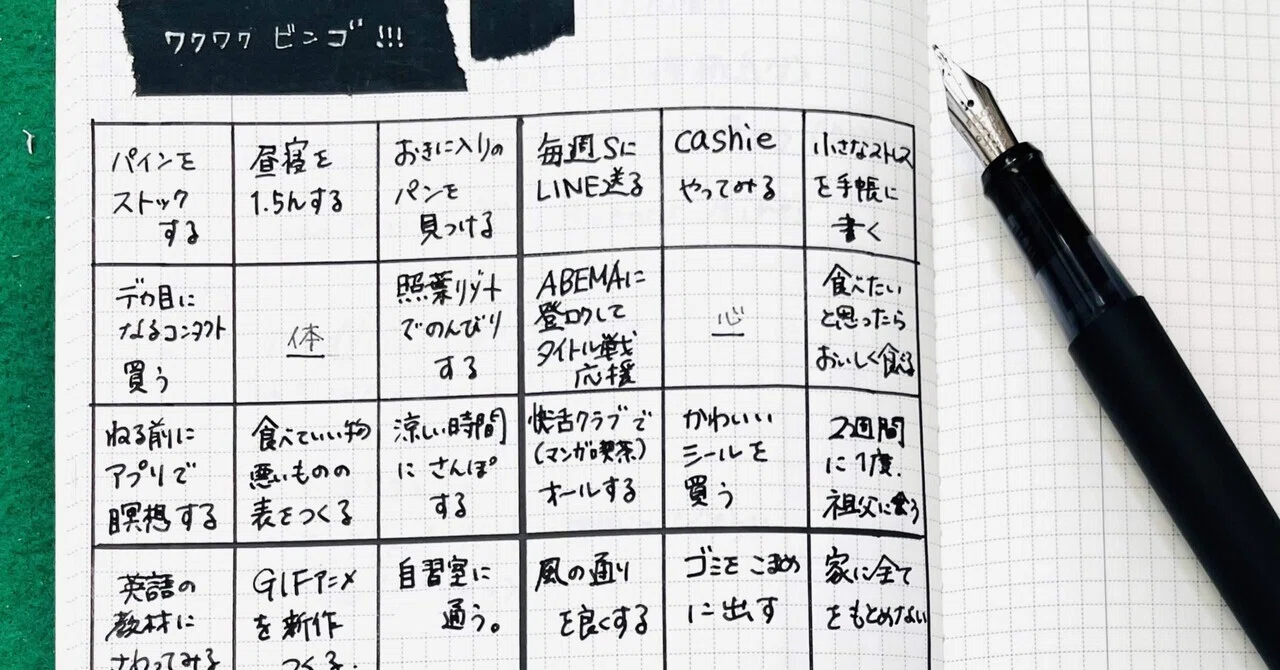 ワクワク ビンゴ!!!
パインを
ストック
する
昼寝を
1.5hする
おきに入りの
パンを
見つける
毎週Sに
LINE送る
cashie
やってみる
小さなストレス
を手帳に
書く
デカ目に
なるコンタクト
買う
体
照葉リゾート
でのんびり
する
ABEMAに
登ロクして
タイトル戦
応援
心
食べたい
と思ったら
おいしく食べる
ねる前に
アプリで
瞑想する
食べていい物
悪いものの
表をつくる
涼しい時間
にさんぽ
する
快活クラブで
(マンガ喫茶)
オールする
かわいい
シールを
買う
2週間
に1度.
祖父に会う
英語の
教材に
さわってみる
GIFアニメ
を新作
つくる.
自習室に
通う。
風の通り
を良くする
ゴミをこまめ
に出す
家に全て
をもとめない